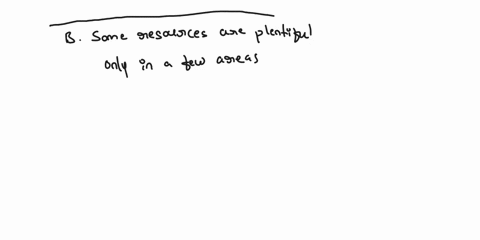 B. Some resources are plentiful
only in a few areas